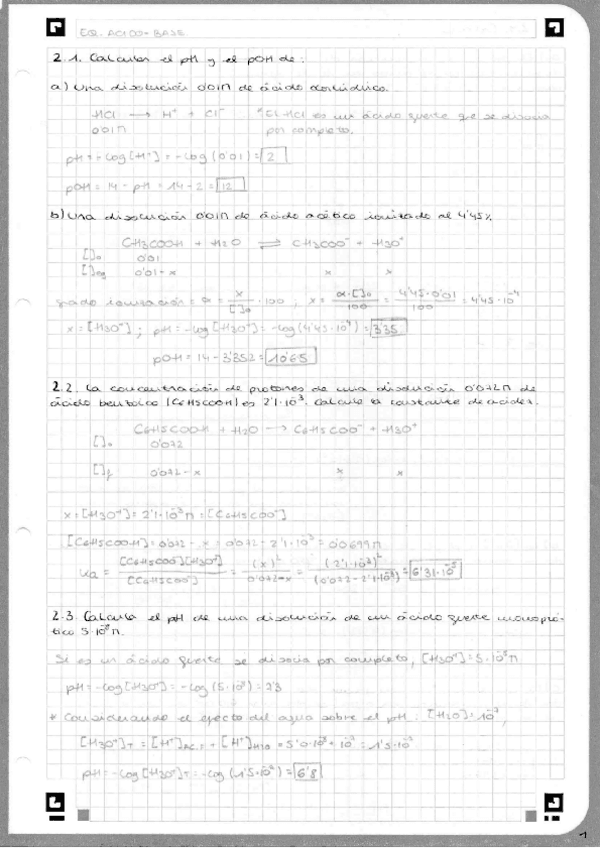 EQ. ACIDO-BASE
2.1. Calcular el pH y el pOH de:
a) Una disolución 0'01M de ácido clorhídrico.
HCl → H⁺ + Cl⁻ *El HCl es un ácido fuerte que se disocia
0'01M por completo.
pH = -log [H⁺] = -log (0'01) = 2
pOH = 14 - pH = 14 - 2 = 12
b) Una disolución 0'01M de ácido acético ionizado al 4'45%
CH3COOH + H2O ⇌ CH3COO⁻ + H3O⁺
[]₀ 0'01
[]eq 0'01-x x x
grado ionización = α = x/[]₀ · 100 ; x = α·[]₀/100 = 4'45·0'01/100 = 4'45·10⁻⁴
x = [H3O⁺] ; pH = -log [H3O⁺] = -log (4'45·10⁻⁴) = 3'35
pOH = 14 - 3'352 = 10'65
2.2. La concentración de protones de una disolución 0'072M de
ácido benzoico (C6H5COOH) es 2'1·10⁻³. Calcula la constante de acidez.
C6H5COOH + H2O → C6H5COO⁻ + H3O⁺
[]₀ 0'072
[]f 0'072-x x x
x = [H3O⁺] = 2'1·10⁻³M = [C6H5COO⁻]
[C6H5COOH] = 0'072 - x = 0'072 - 2'1·10⁻³ = 0'0699M
Ka = [C6H5COO⁻][H3O⁺]/[C6H5COO⁻] = (x)²/0'072-x = (2'1·10⁻³)²/(0'072-2'1·10⁻³) = 6'31·10⁻⁵
2.3. Calcula el pH de una disolución de un ácido fuerte monopró-
tico 5·10⁻⁸M.
Si es un ácido fuerte se disocia por completo, [H3O⁺] = 5·10⁻⁸M
pH = -log [H3O⁺] = -log (5·10⁻⁸) = 7'3
* Considerando el efecto del agua sobre el pH: [H2O] = 10⁻⁷,
[H3O⁺]T = [H⁺]AC.F + [H⁺]H2O = 5'0·10⁻⁸ + 10⁻⁷ = 1'5·10⁻⁷
pH = -log [H3O⁺]T = -log (1'5·10⁻⁷) = 6'8
1